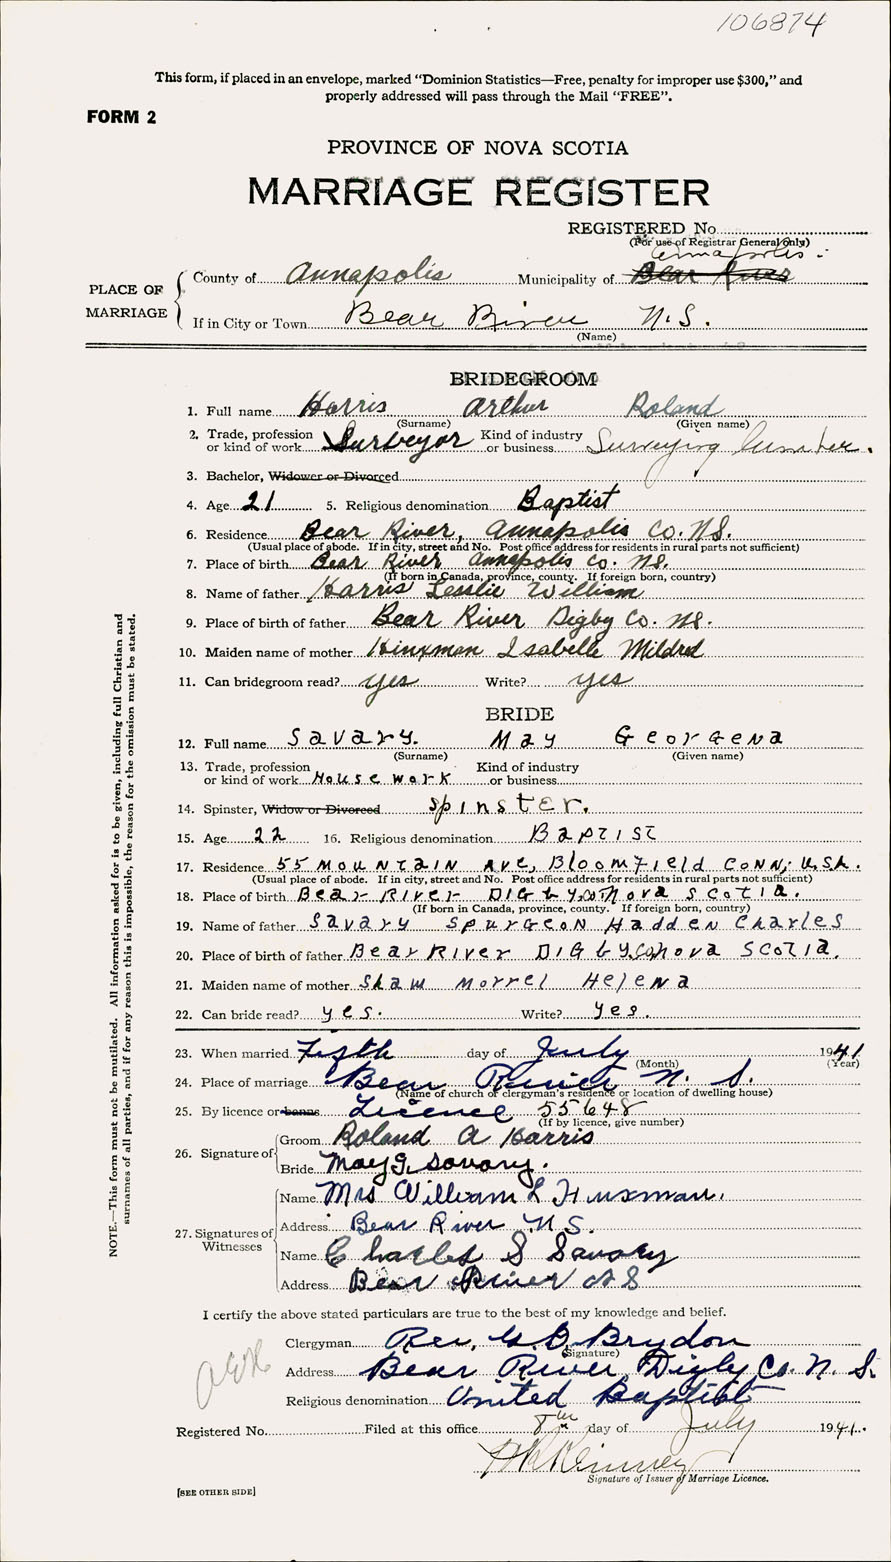 106874
This form, if placed in an envelope, marked “Dominion Statistics—Free, penalty for improper use $300,” and
properly addressed will pass through the Mail “FREE”.
FORM 2
PROVINCE OF NOVA SCOTIA
MARRIAGE REGISTER
REGISTERED No.
(For use of Registrar General only)
Annapolis
PLACE OF MARRIAGE
County of Annapolis Municipality of Bear River
If in City or Town Bear River N.S.
(Name)
BRIDEGROOM
1. Full name Harris Arthur Roland
(Surname) (Given name)
2. Trade, profession or kind of work Surveyor Kind of industry or business Surveying lumber.
3. Bachelor, Widower or Divorced
4. Age 21 5. Religious denomination Baptist
6. Residence Bear River, Annapolis Co. N.S.
(Usual place of abode. If in city, street and No. Post office address for residents in rural parts not sufficient)
7. Place of birth Bear River Annapolis Co. N.S.
(If born in Canada, province, county. If foreign born, country)
8. Name of father Harris Lesslie William
9. Place of birth of father Bear River Digby Co. N.S.
10. Maiden name of mother Hinxman Isabelle Mildred
11. Can bridegroom read? yes Write? yes
BRIDE
12. Full name Savary. May Georgena
(Surname) (Given name)
13. Trade, profession or kind of work Housework Kind of industry or business
14. Spinster, Widow or Divorced Spinster.
15. Age 22 16. Religious denomination Baptist
17. Residence 55 Mountain Ave, Bloomfield Conn, U.S.A.
(Usual place of abode. If in city, street and No. Post office address for residents in rural parts not sufficient)
18. Place of birth Bear River Digby, Co Nova Scotia.
(If born in Canada, province, county. If foreign born, country)
19. Name of father Savary Spurgeon Hadden Charles
20. Place of birth of father Bear River Digby, Co Nova Scotia.
21. Maiden name of mother Shaw Morrel Helena
22. Can bride read? yes. Write? yes.
23. When married Fifth day of July 1941
(Month) (Year)
24. Place of marriage Bear River N. S.
(Name of church or clergyman's residence or location of dwelling house)
25. By licence or banns Licence 55648
(If by licence, give number)
26. Signature of
Groom Roland A Harris
Bride May G. Savary.
27. Signatures of Witnesses
Name Mrs William L Hinxman.
Address Bear River N S.
Name Charles S Savary
Address Bear River N S
I certify the above stated particulars are true to the best of my knowledge and belief.
Clergyman Rev. G. D. Brydon
(Signature)
Address Bear River Digby Co. N. S.
Religious denomination United Baptist
Registered No. Filed at this office 8th day of July 1941.
Kinney
Signature of Issuer of Marriage Licence.
[SEE OTHER SIDE]
NOTE.—This form must not be mutilated. All information asked for is to be given, including full Christian and
surnames of all parties, and if for any reason this is impossible, the reason for the omission must be stated.